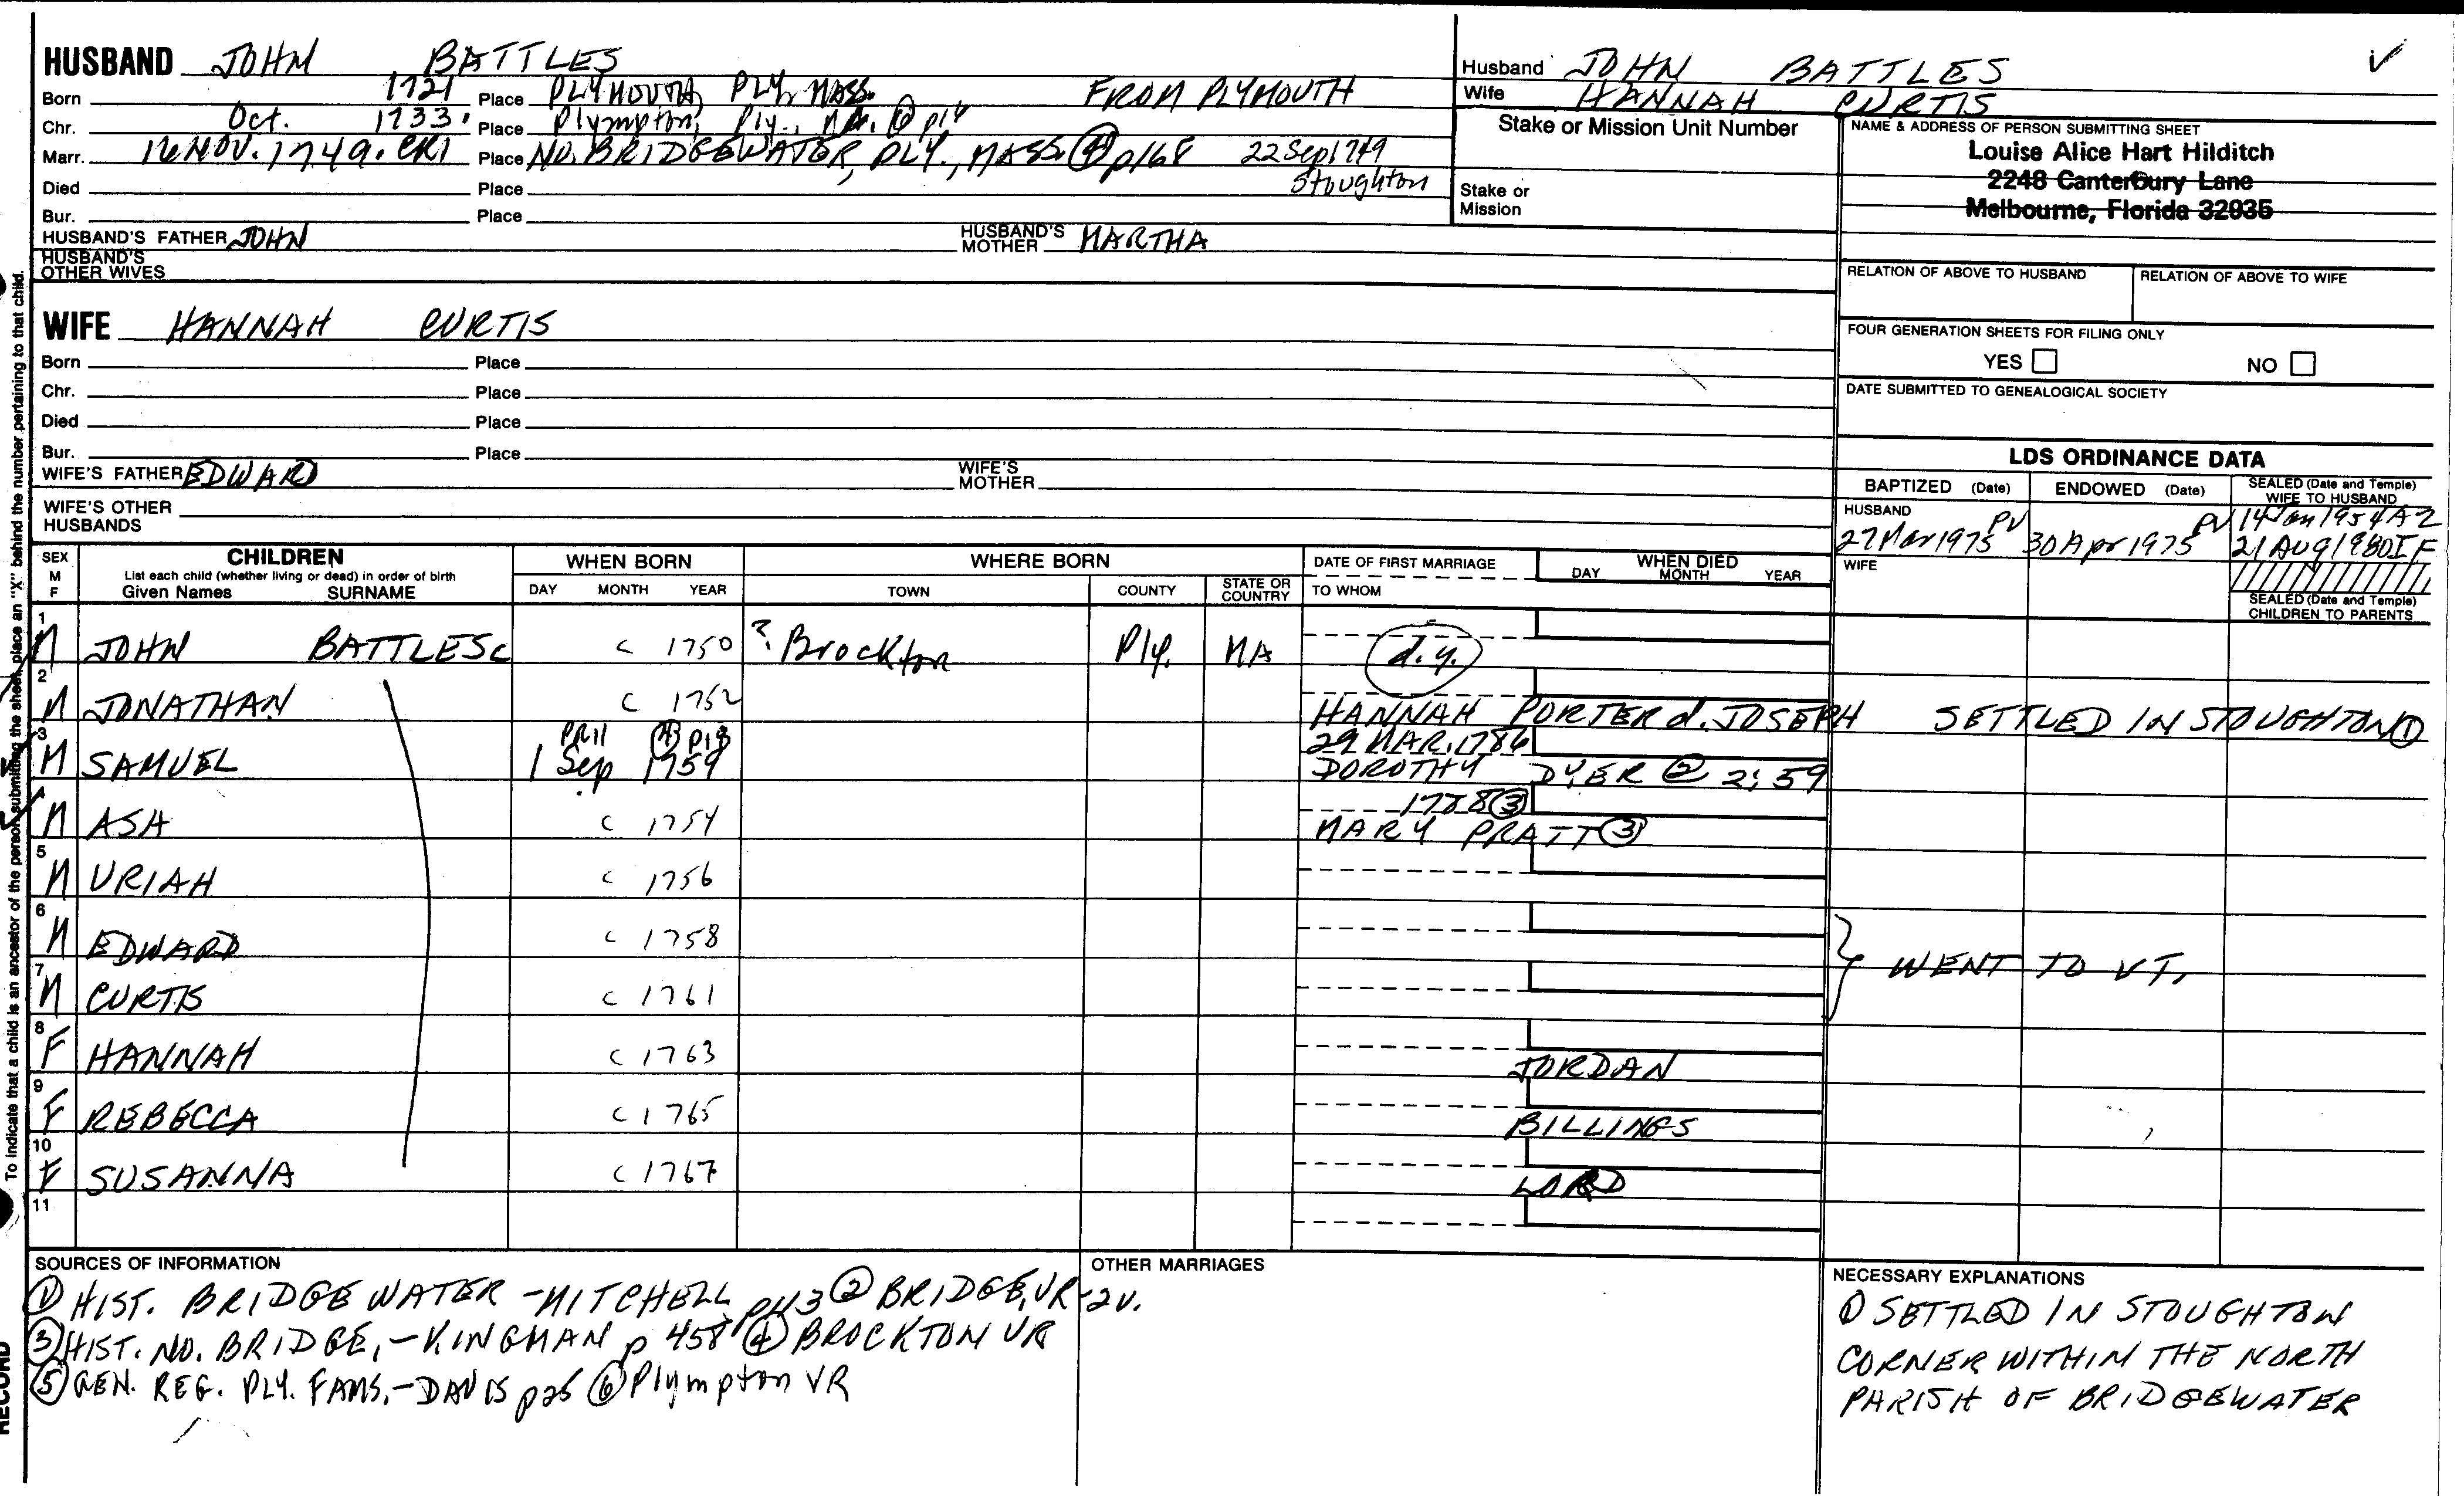 HUSBAND JOHN BATTLES
Born 1721 Place PLYMOUTH, PLY, MASS. FROM PLYMOUTH
Chr. Oct. 1733. Place Plympton, Ply., MA. ⑥ p14
Marr. 16 NOV. 1749. CR1 Place NO. BRIDGEWATER, PLY., MASS. ④ p168 22 Sep 1749
Stoughton
Died Place
Bur. Place
HUSBAND'S FATHER JOHN HUSBAND'S MOTHER MARTHA
HUSBAND'S OTHER WIVES
WIFE HANNAH CURTIS
Born Place
Chr. Place
Died Place
Bur. Place
WIFE'S FATHER EDWARD WIFE'S MOTHER
WIFE'S OTHER HUSBANDS
Husband JOHN BATTLES
Wife HANNAH CURTIS
Stake or Mission Unit Number
Stake or Mission
NAME & ADDRESS OF PERSON SUBMITTING SHEET
Louise Alice Hart Hilditch
2248 Canterbury Lane
Melbourne, Florida 32935
RELATION OF ABOVE TO HUSBAND RELATION OF ABOVE TO WIFE
FOUR GENERATION SHEETS FOR FILING ONLY
YES NO
DATE SUBMITTED TO GENEALOGICAL SOCIETY
LDS ORDINANCE DATA
BAPTIZED (Date) ENDOWED (Date) SEALED (Date and Temple) WIFE TO HUSBAND
HUSBAND 27 Mar 1975 PV 30 Apr 1975 PV 14 Jan 1954 AZ
21 AUG 1980 IF
WIFE
SEALED (Date and Temple) CHILDREN TO PARENTS
SEX M F CHILDREN List each child (whether living or dead) in order of birth Given Names SURNAME WHEN BORN DAY MONTH YEAR WHERE BORN TOWN COUNTY STATE OR COUNTRY DATE OF FIRST MARRIAGE TO WHOM WHEN DIED DAY MONTH YEAR
1 M JOHN BATTLES c 1750 ? Brockton Ply. MA d.y.
2 M JONATHAN c 1752 HANNAH PORTER d. JOSEPH SETTLED IN STOUGHTON ①
3 M SAMUEL PR11 ④ p18 1 Sep 1759 29 MAR. 1786 DOROTHY DYER ② 2:59
4 M ASA c 1754 1788 ③ MARY PRATT ③
5 M URIAH c 1756
6 M EDWARD c 1758
WENT TO VT.
7 M CURTIS c 1761
8 F HANNAH c 1763 JORDAN
9 F REBECCA c 1765 BILLINGS
10 F SUSANNA c 1767 LORD
11
SOURCES OF INFORMATION
① HIST. BRIDGEWATER - MITCHELL p113 ② BRIDGE. VR - 2v.
③ HIST. NO. BRIDGE. - KINGMAN p 458 ④ BROCKTON VR
⑤ GEN. REG. PLY. FAMS. - DAVIS p25 ⑥ Plympton VR
OTHER MARRIAGES
NECESSARY EXPLANATIONS
① SETTLED IN STOUGHTON
CORNER WITHIN THE NORTH
PARISH OF BRIDGEWATER
To indicate that a child is an ancestor of the person submitting the sheet, place an "X" behind the number pertaining to that child.
RECORD